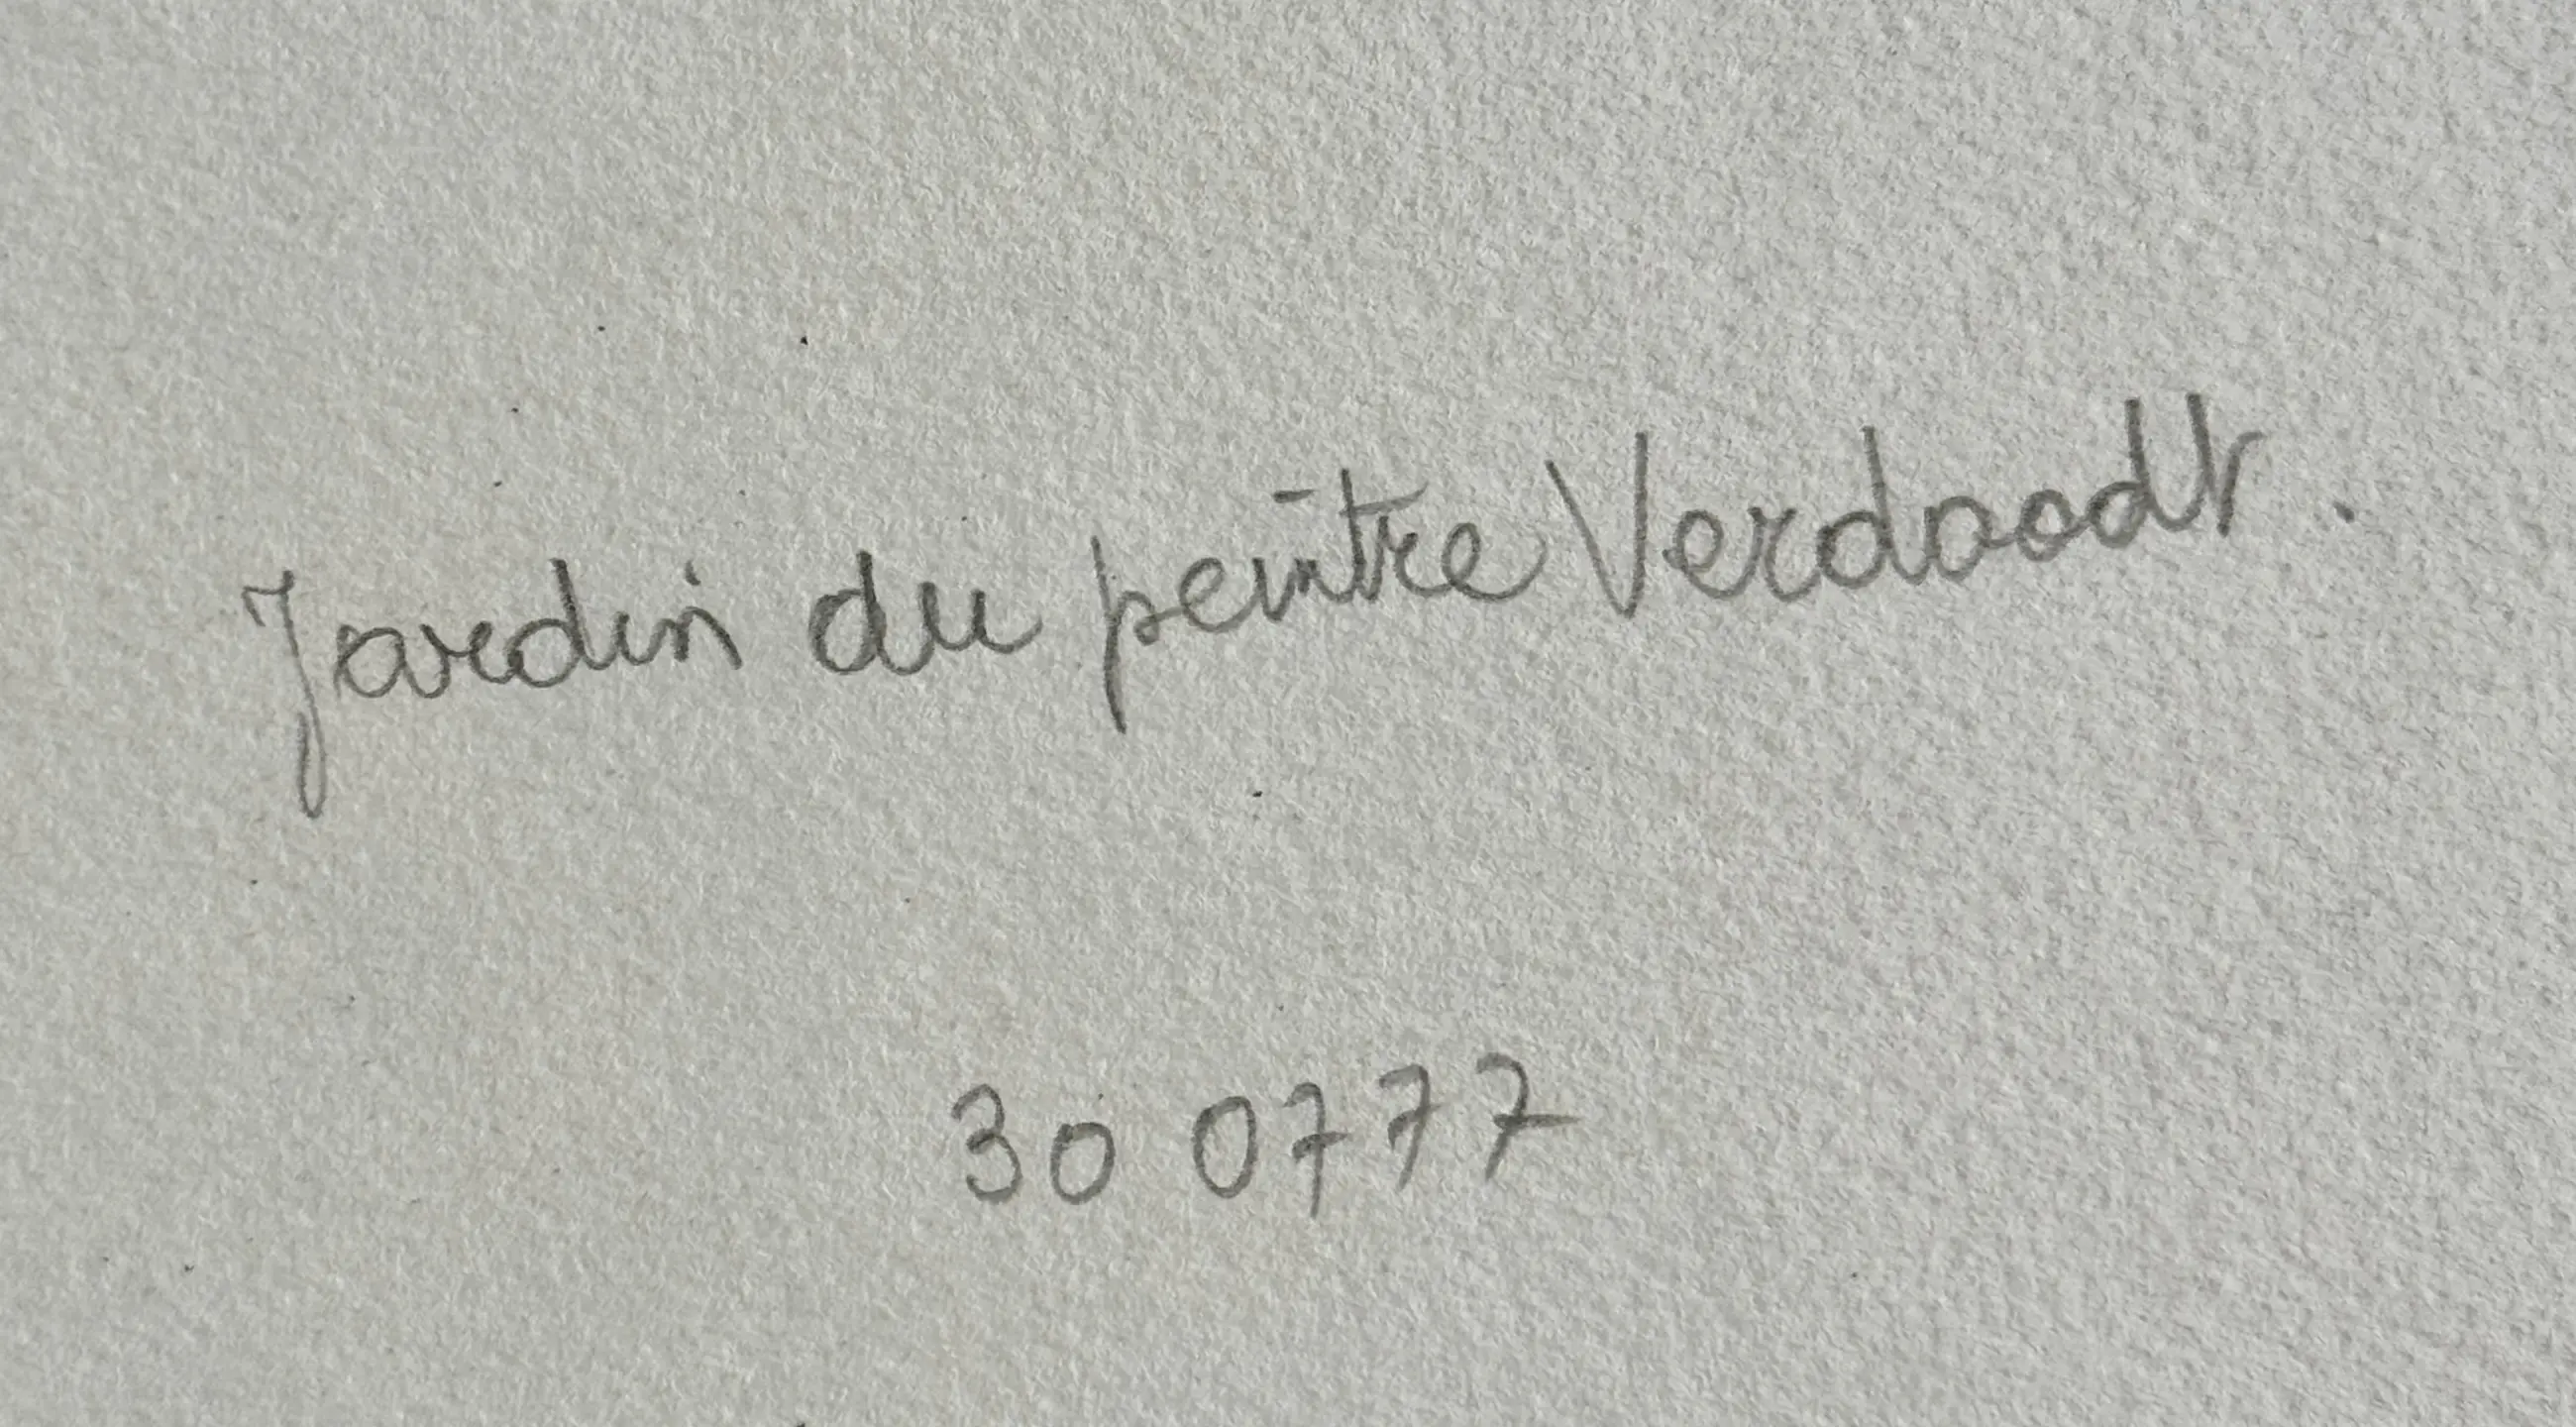 Jardin du peintre Verdoodt.
30 0777